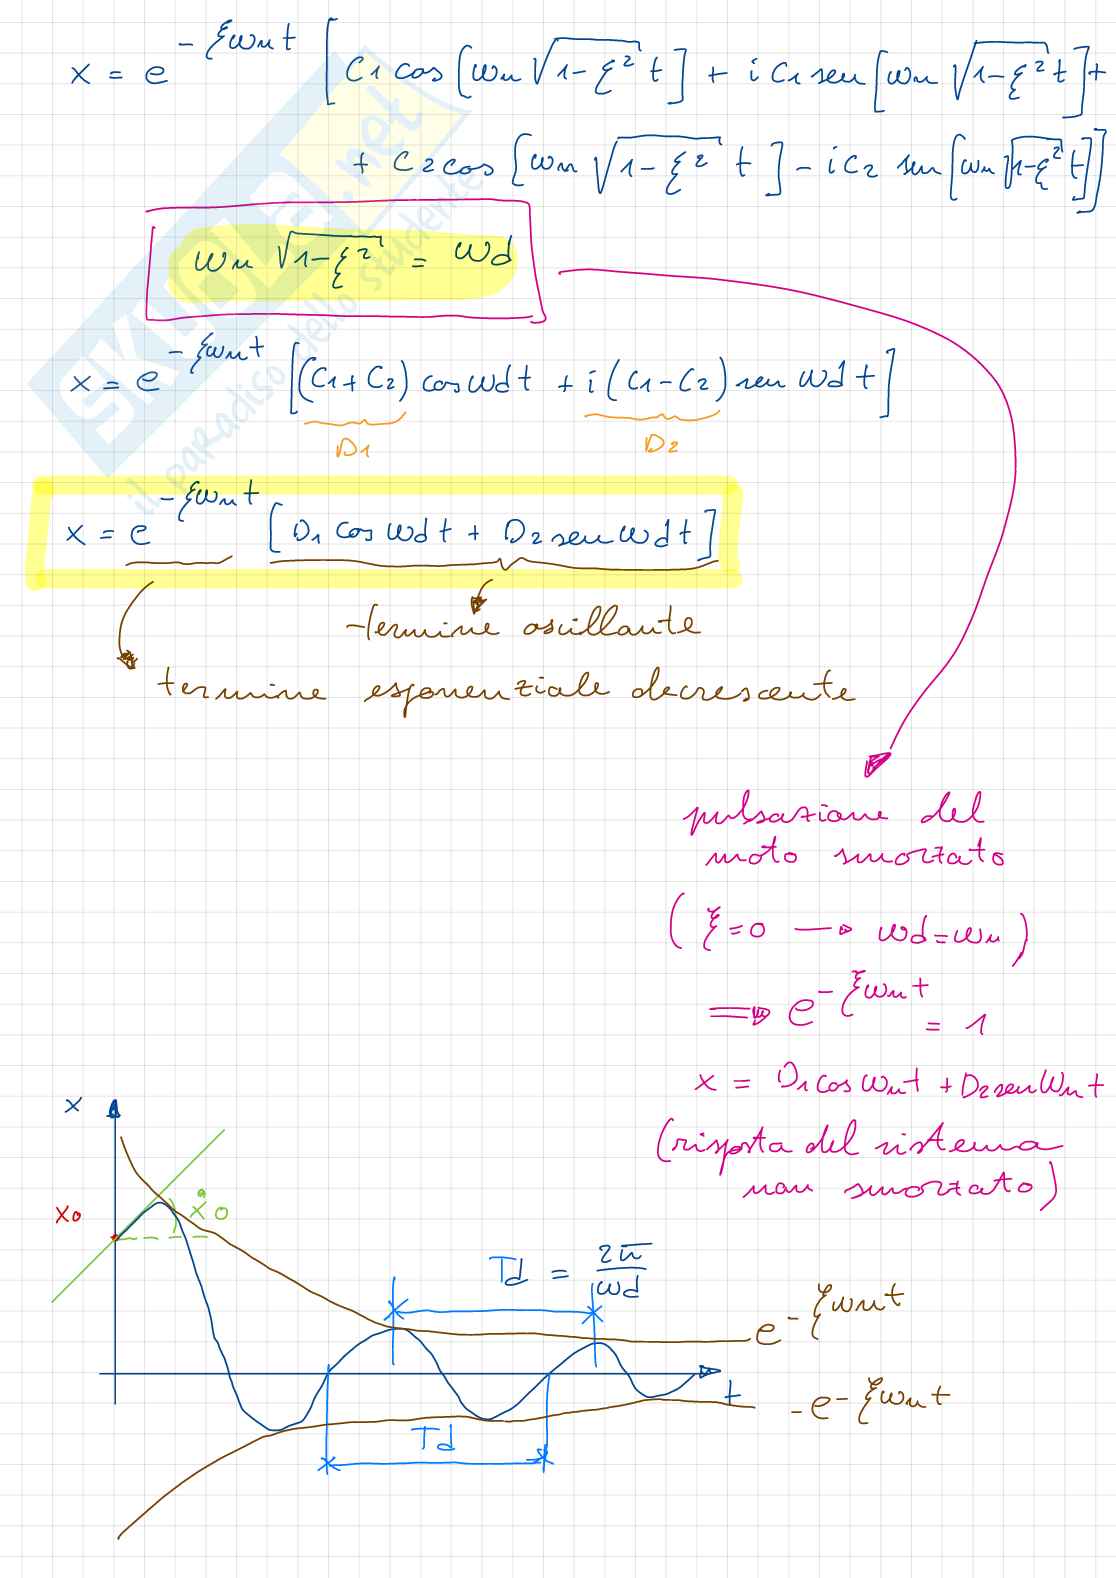 x = e^{-ξωn t} [ C1 cos [ωn √(1-ξ²) t] + i C1 sen [ωn √(1-ξ²) t] +
+ C2 cos [ωn √(1-ξ²) t] - i C2 sen [ωn √(1-ξ²) t] ]
ωn √(1-ξ²) = ωd
x = e^{-ξωn t} [ (C1+C2) cos ωd t + i (C1-C2) sen ωd t ]
D1 D2
x = e^{-ξωn t} [ D1 cos ωd t + D2 sen ωd t ]
termine oscillante
termine esponenziale decrescente
pulsazione del
moto smorzato
( ξ=0 → ωd=ωn )
⇒ e^{-ξωn t} = 1
x = D1 cos ωn t + D2 sen ωn t
(risposta del sistema
non smorzato)
x
x0
ẋ0
Td = 2π/ωd
e^{-ξωn t}
t
-e^{-ξωn t}
Td
SKUOLA.net
il paradiso dello studente